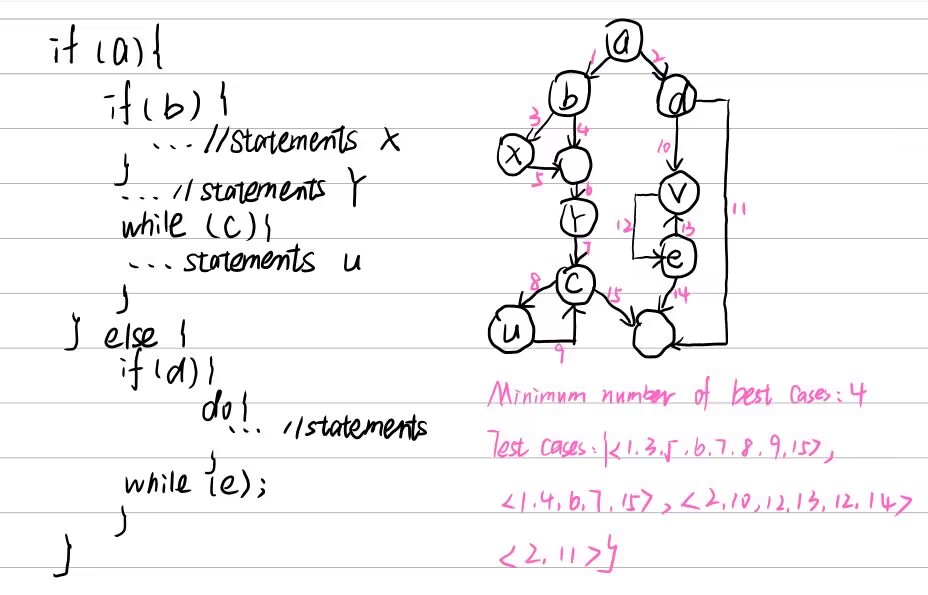 if (a){
if (b) {
... //statements X
}
... // statements Y
while (c){
... statements u
}
} else {
if (d) {
do {
... //statements
}
while (e);
}
}
a
1
2
b
d
3
4
10
11
X
5
6
V
Y
12
13
7
e
c
8
15
14
u
9
Minimum number of best cases: 4
Test cases: {<1.3.5.6.7.8.9.15>,
<1.4,6,7,15>, <2,10,12,13,12,14>
<2,11>}